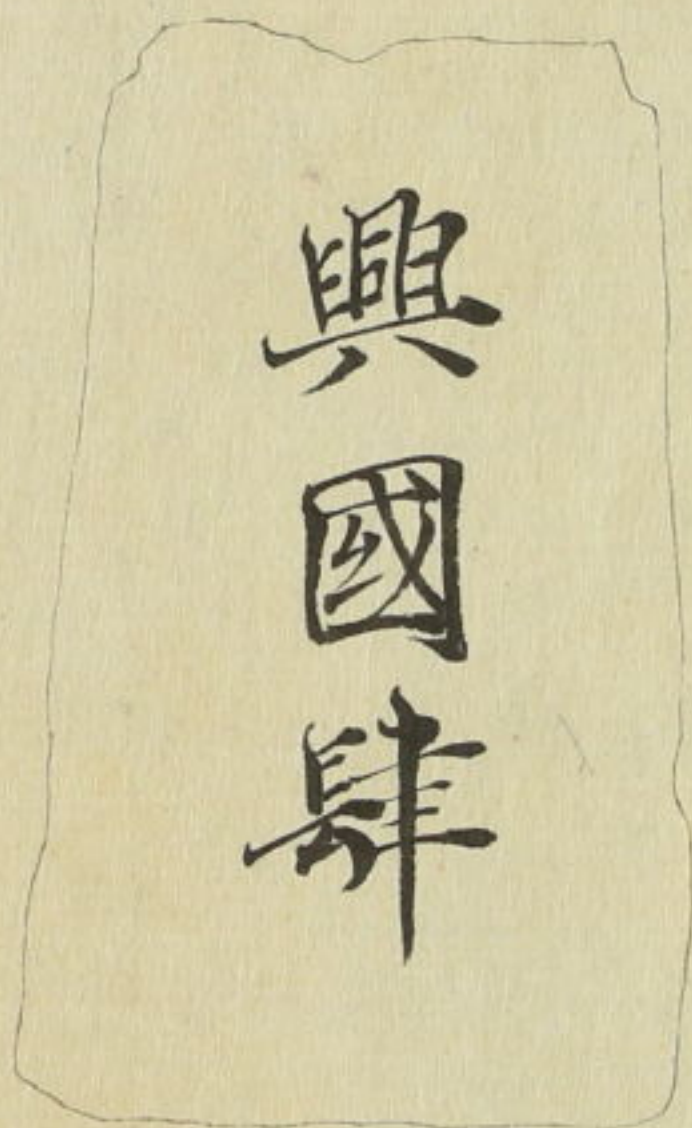 興國肆